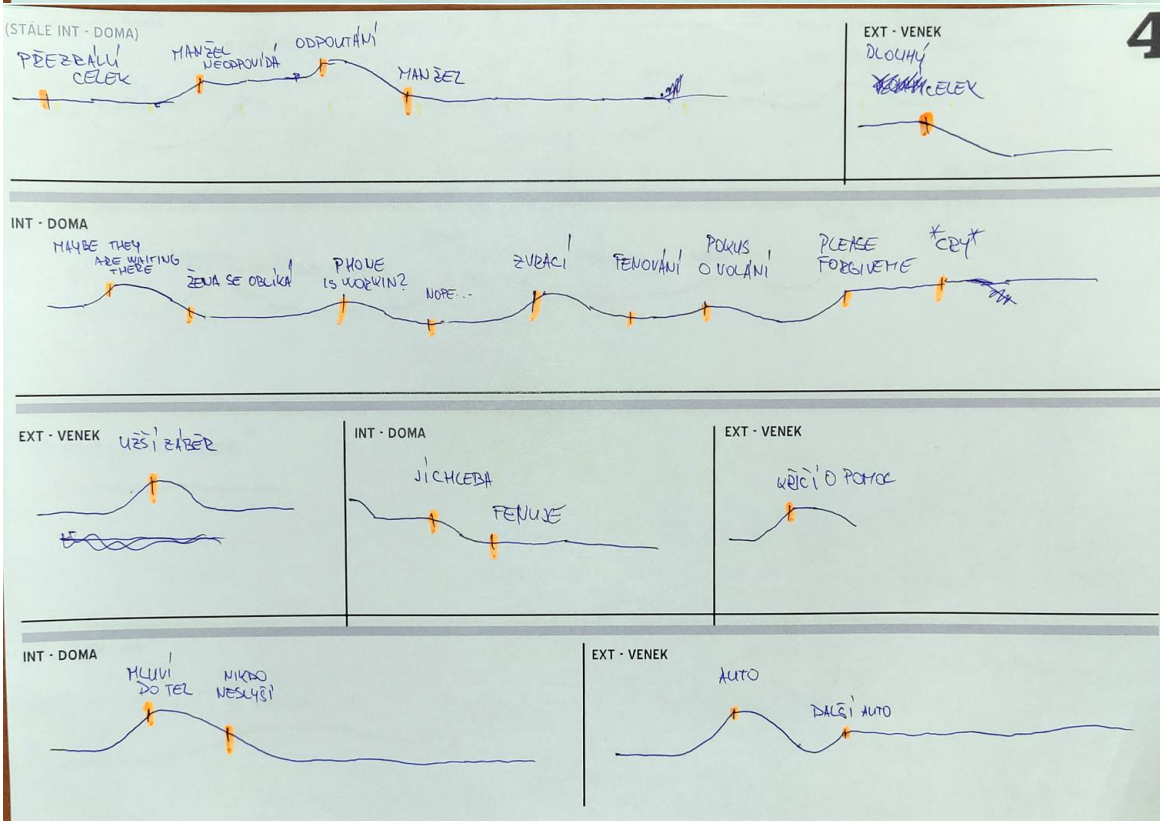 (STÁLE INT - DOMA)
CELEK
MANŽEL
NEODPOVÍDÁ
ODPOUTÁNÍ
MANŽEL
EXT - VENEK
4
DLOUHÝ
CELEK
INT - DOMA
MAYBE THEY
ARE WAITING
THERE
ŽENA SE OBLÍKÁ
PHONE
IS WORKIN?
NOPE...
ZVRACÍ
FENOVÁNÍ
POKUS
O VOLÁNÍ
PLEASE
FORGIVEME
*CRY*
EXT - VENEK
UŽŠÍ ZÁBĚR
INT - DOMA
JÍ CHLEBA
FENUJE
EXT - VENEK
KŘIČÍ O POMOC
INT - DOMA
MLUVÍ
DO TEL
NIKDO
NESLYŠÍ
EXT - VENEK
AUTO
DALŠÍ AUTO